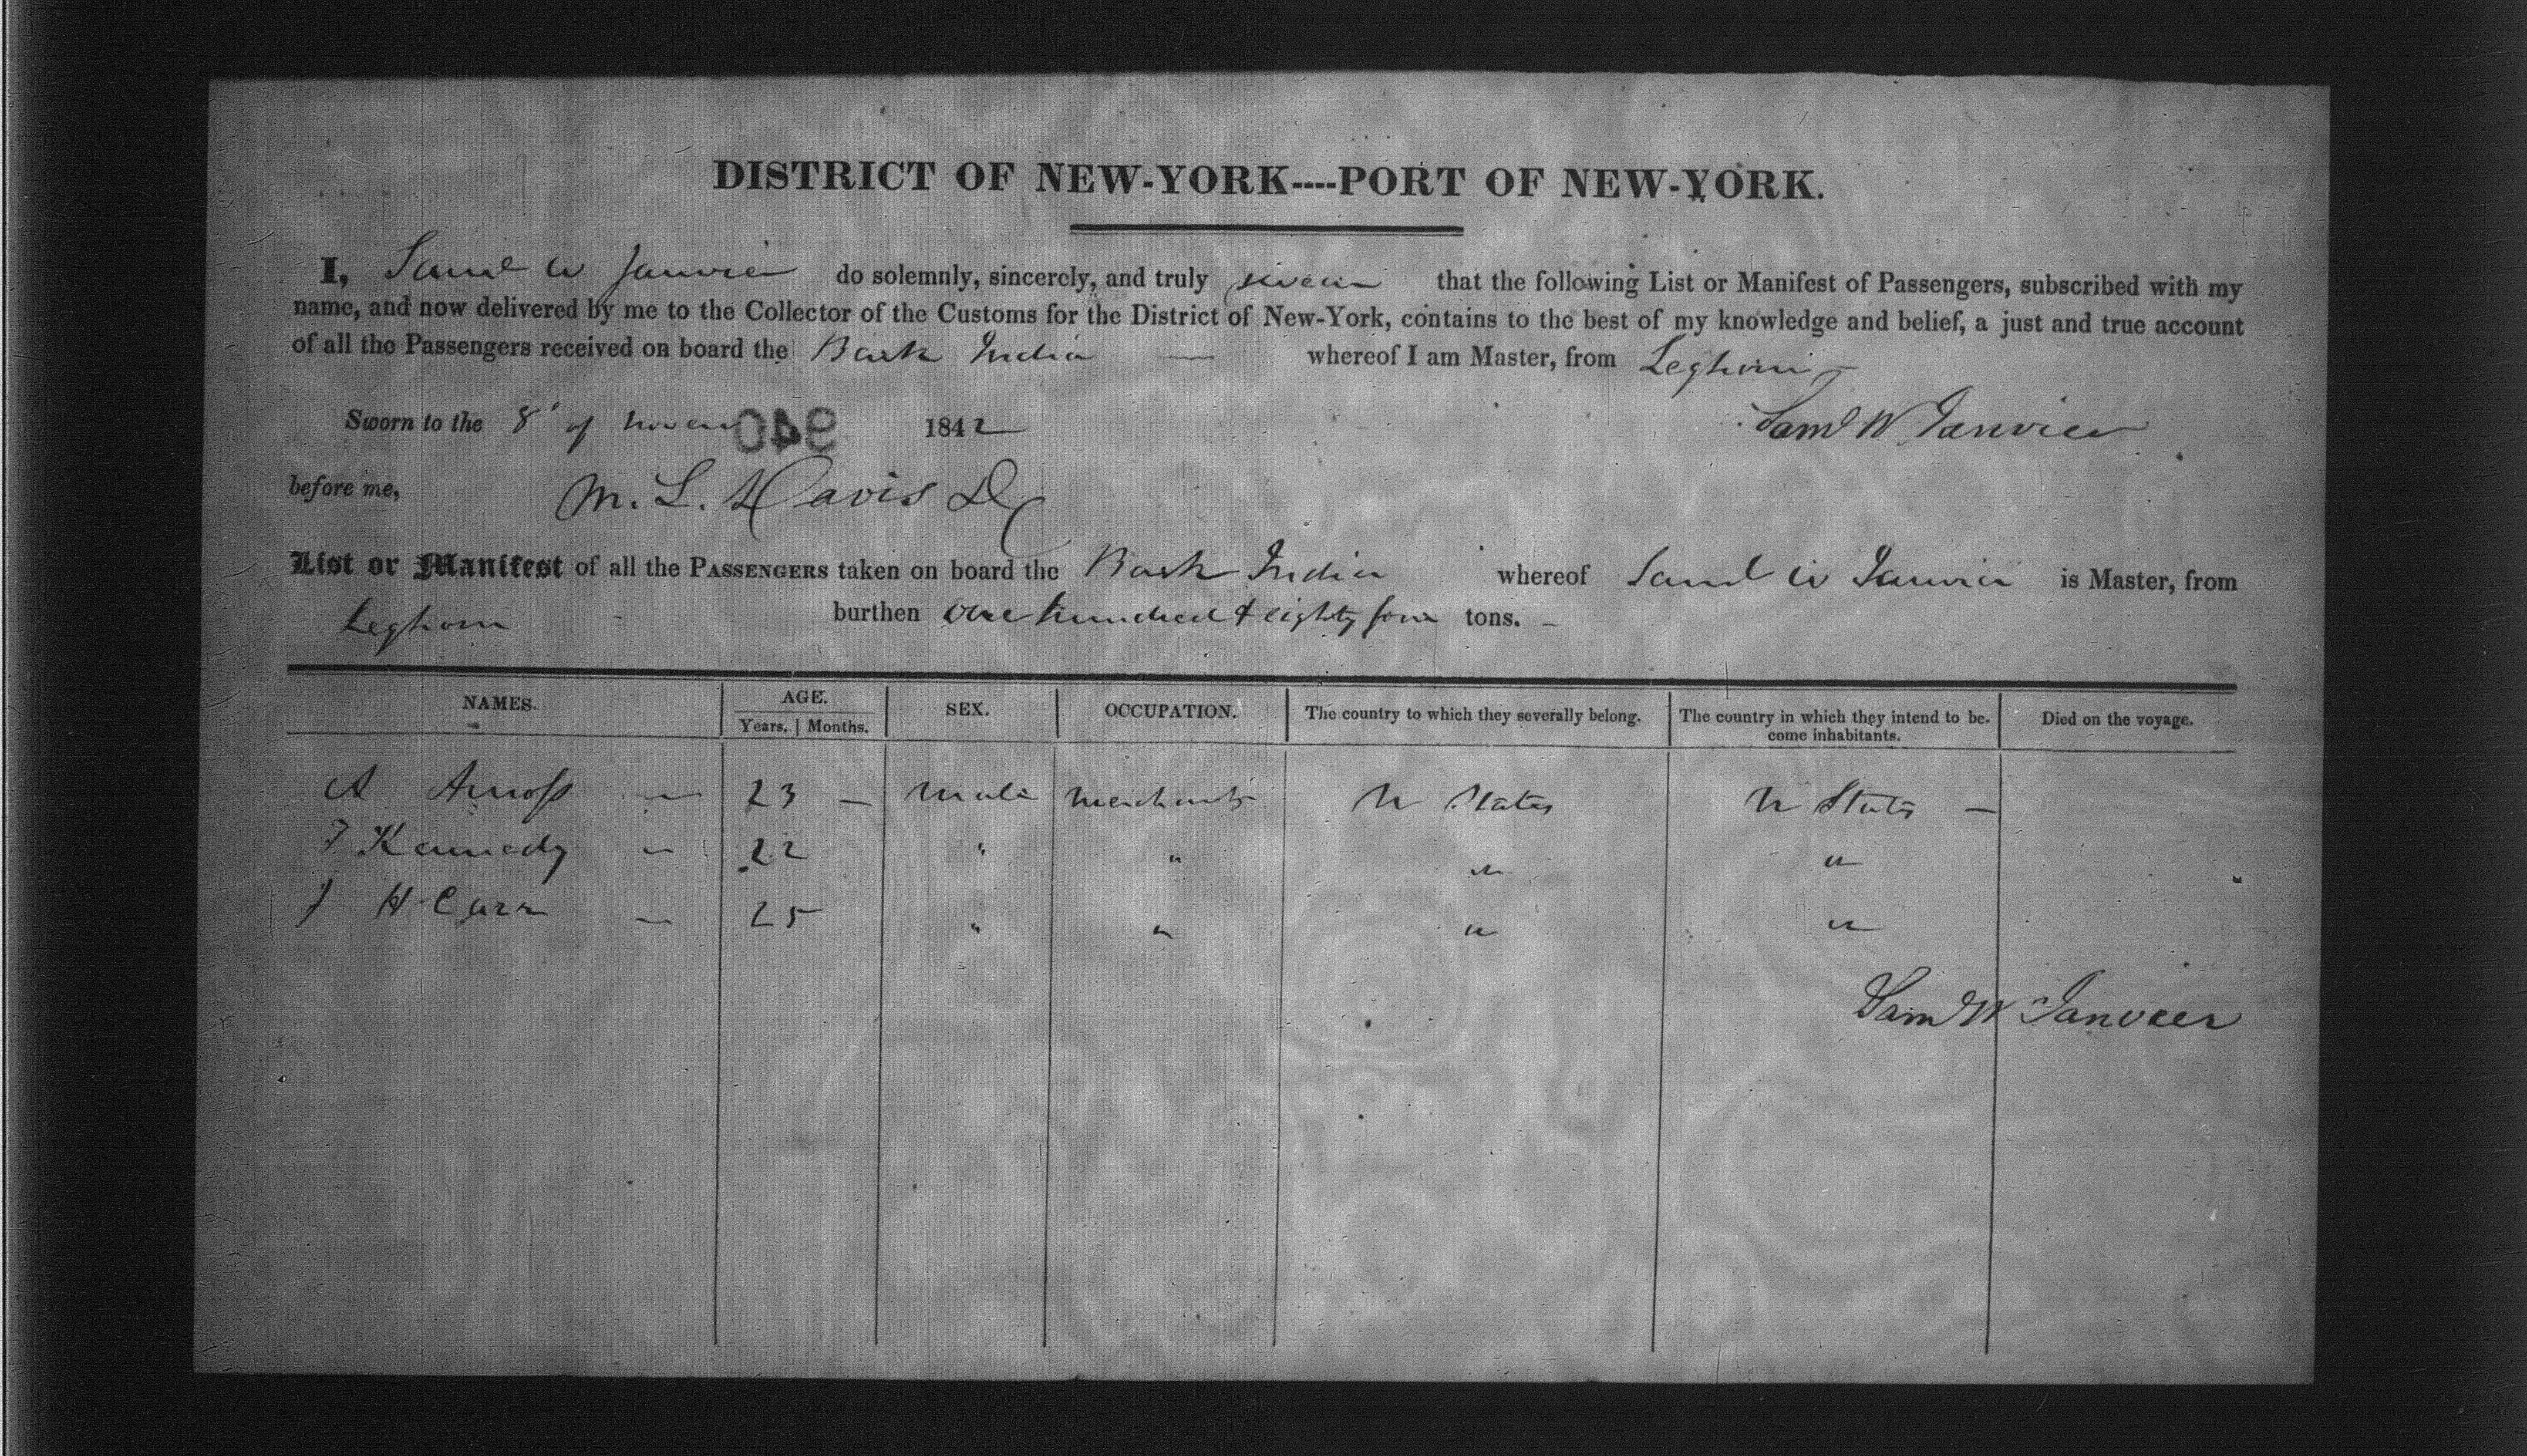 DISTRICT OF NEW-YORK----PORT OF NEW-YORK.
I, Saml W Janvier do solemnly, sincerely, and truly swear that the following List or Manifest of Passengers, subscribed with my
name, and now delivered by me to the Collector of the Customs for the District of New-York, contains to the best of my knowledge and belief, a just and true account
of all the Passengers received on board the Bark India — whereof I am Master, from Leghorn
Sworn to the 8th of Novem 940 1842 Saml W Janvier
before me, M. L. Davis DC
List or Manifest of all the PASSENGERS taken on board the Bark India whereof Saml W Janvier is Master, from
Leghorn burthen One hundred & eighty four tons. –
NAMES. AGE. SEX. OCCUPATION. The country to which they severally belong. The country in which they intend to be- Died on the voyage.
Years. | Months. come inhabitants.
A — 23 — male merchants U States U States —
Kennedy " 22 " " " "
J H Carr — 25 " " " "
Saml W Janvier